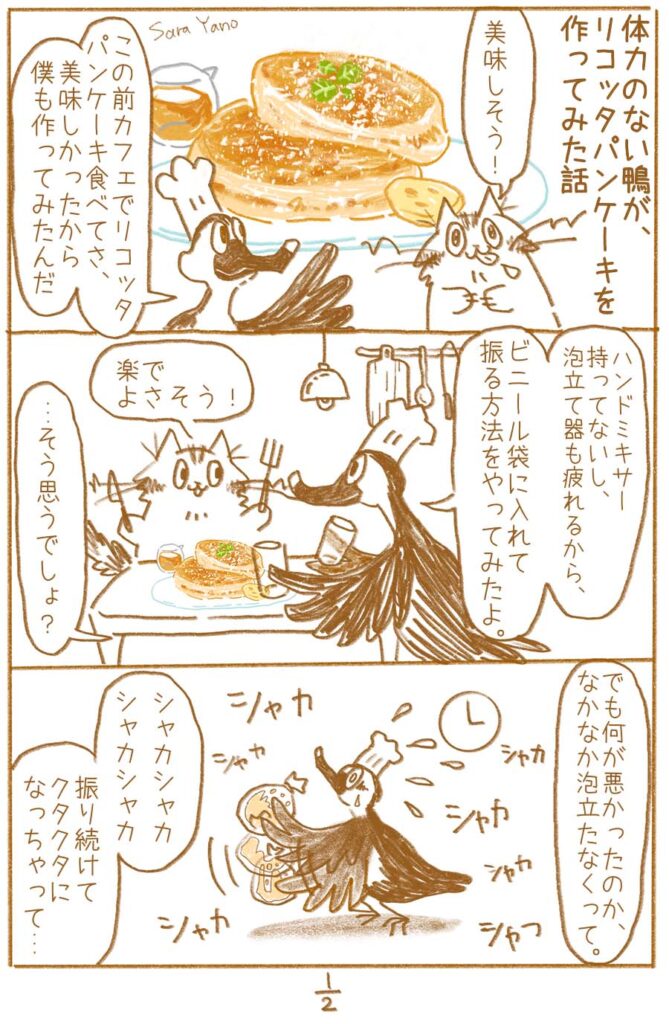 体力のない鴨が、
リコッタパンケーキを
作ってみた話
Sara Yano
美味しそう！
この前カフェでリコッタ
パンケーキ食べてさ、
美味しかったから
僕も作ってみたんだ
ハンドミキサー
持ってないし、
泡立て器も疲れるから、
ビニール袋に入れて
振る方法をやってみたよ。
楽で
よさそう！
…そう思うでしょ？
でも何が悪かったのか、
なかなか泡立たなくって。
シャカ
シャカ
シャカ
シャカ
シャカ
シャカ
シャカ
シャカシャカ
シャカシャカ
振り続けて
クタクタに
なっちゃって…
1/2